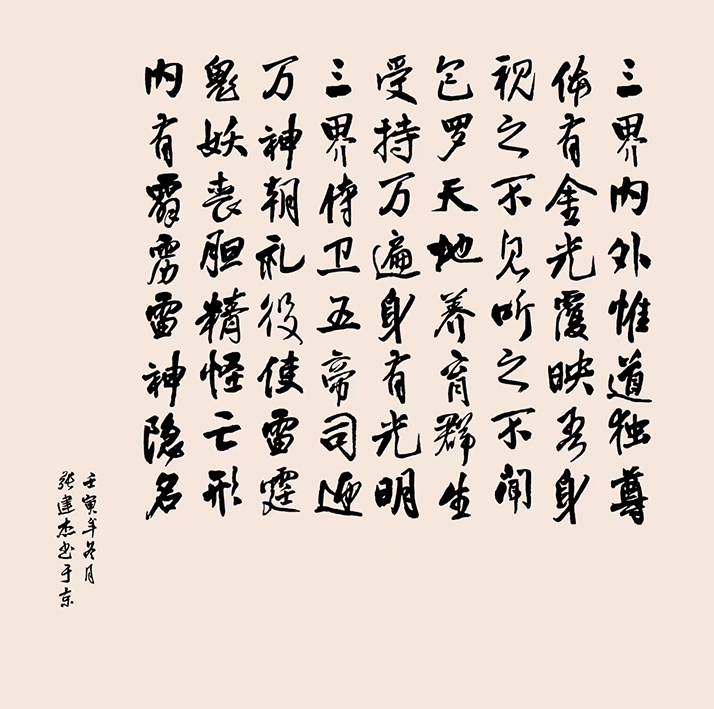 三界内外惟道独尊
体有金光覆映吾身
视之不见听之不闻
包罗天地养育群生
受持万遍身有光明
三界侍卫五帝司迎
万神朝礼役使雷霆
鬼妖丧胆精怪亡形
内有霹雳雷神隐名
壬寅年冬月
张建杰书于京